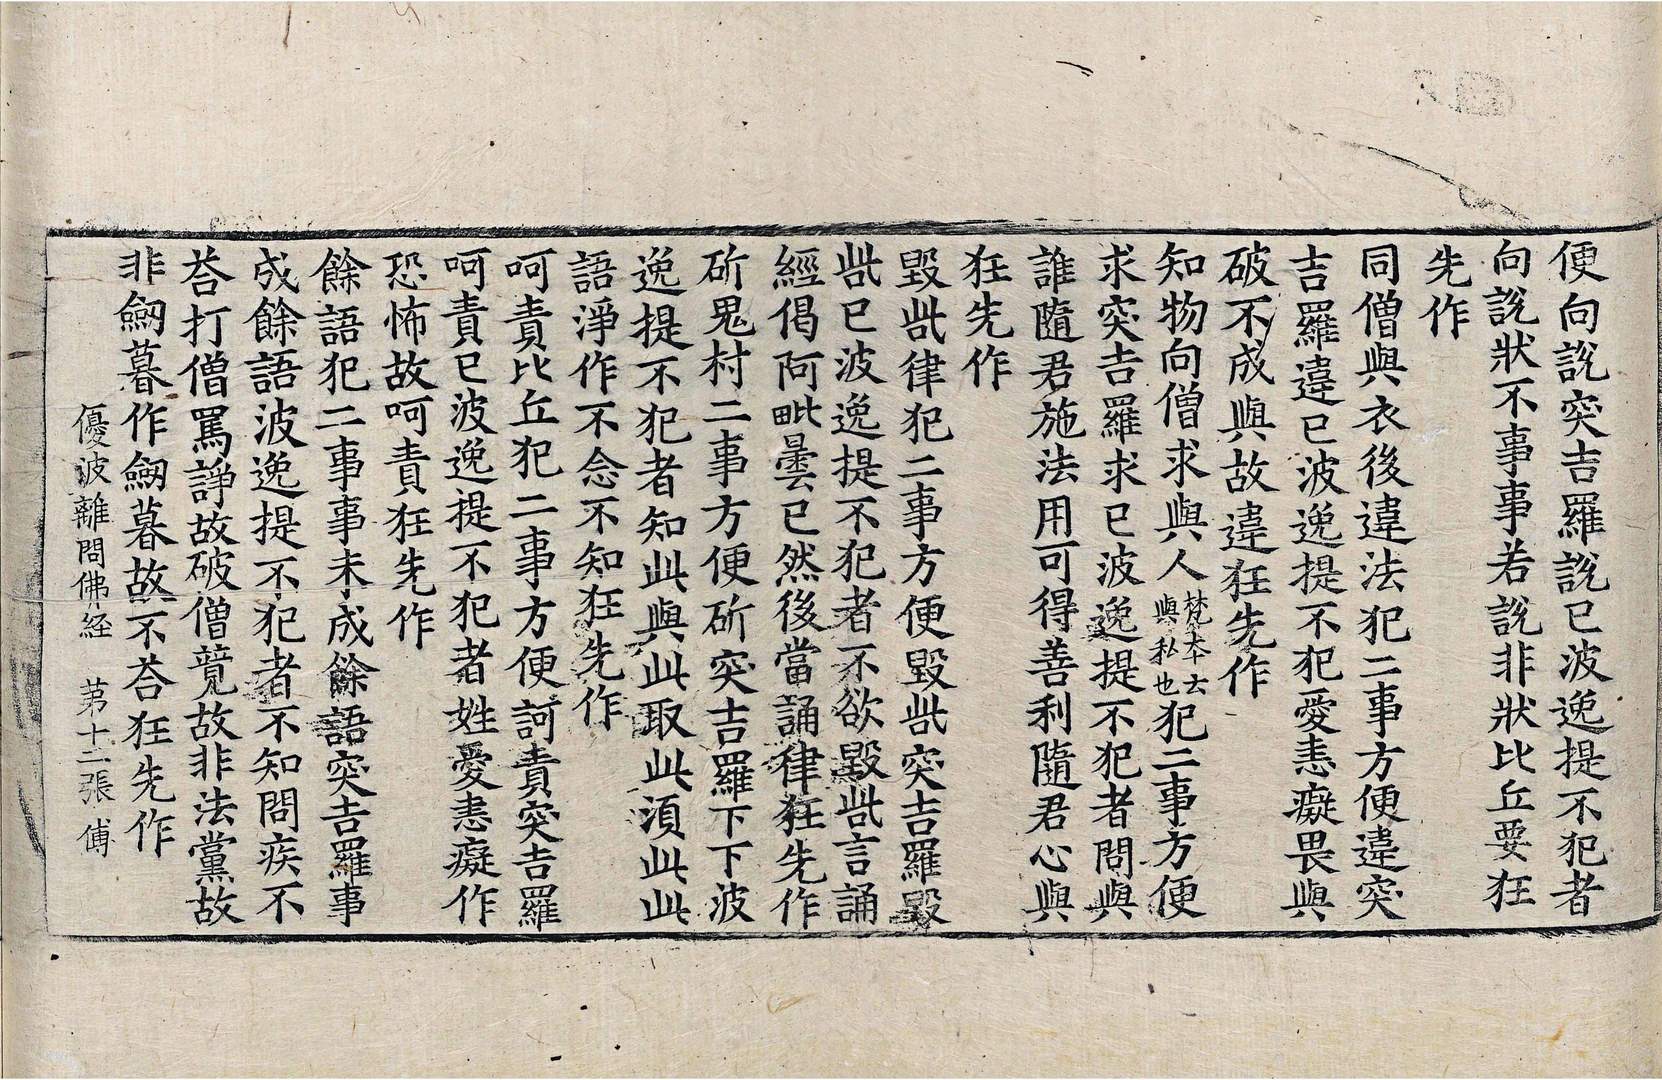 便向說突吉羅說已波逸提不犯者
向說狀不事事若說非狀比丘要狂
先作
同僧與衣後違法犯二事方便違突
吉羅違已波逸提不犯愛恚癡畏與
破不成與故違狂先作
知物向僧求與人梵本云與私也犯二事方便
求突吉羅求已波逸提不犯者問與
誰隨君施法用可得善利隨君心與
狂先作
毀呰律犯二事方便毀呰突吉羅毀
呰已波逸提不犯者不欲毀呰言誦
經偈阿毗曇已然後當誦律狂先作
斫鬼村二事方便斫突吉羅下下波
逸提不犯者知此與此取此湏此此
語淨作不念不知狂先作
呵責比丘犯二事方便訶責突吉羅
呵責已波逸提不犯者姓愛恚癡作
恐怖故呵責狂先作
餘語犯二事事未成餘語突吉羅事
成餘語波逸提不犯者不知問疾不
荅打僧罵諍故破僧竟故非法黨故
非劒暮作劒暮故不荅狂先作
優波離問佛経　第十二張　傅